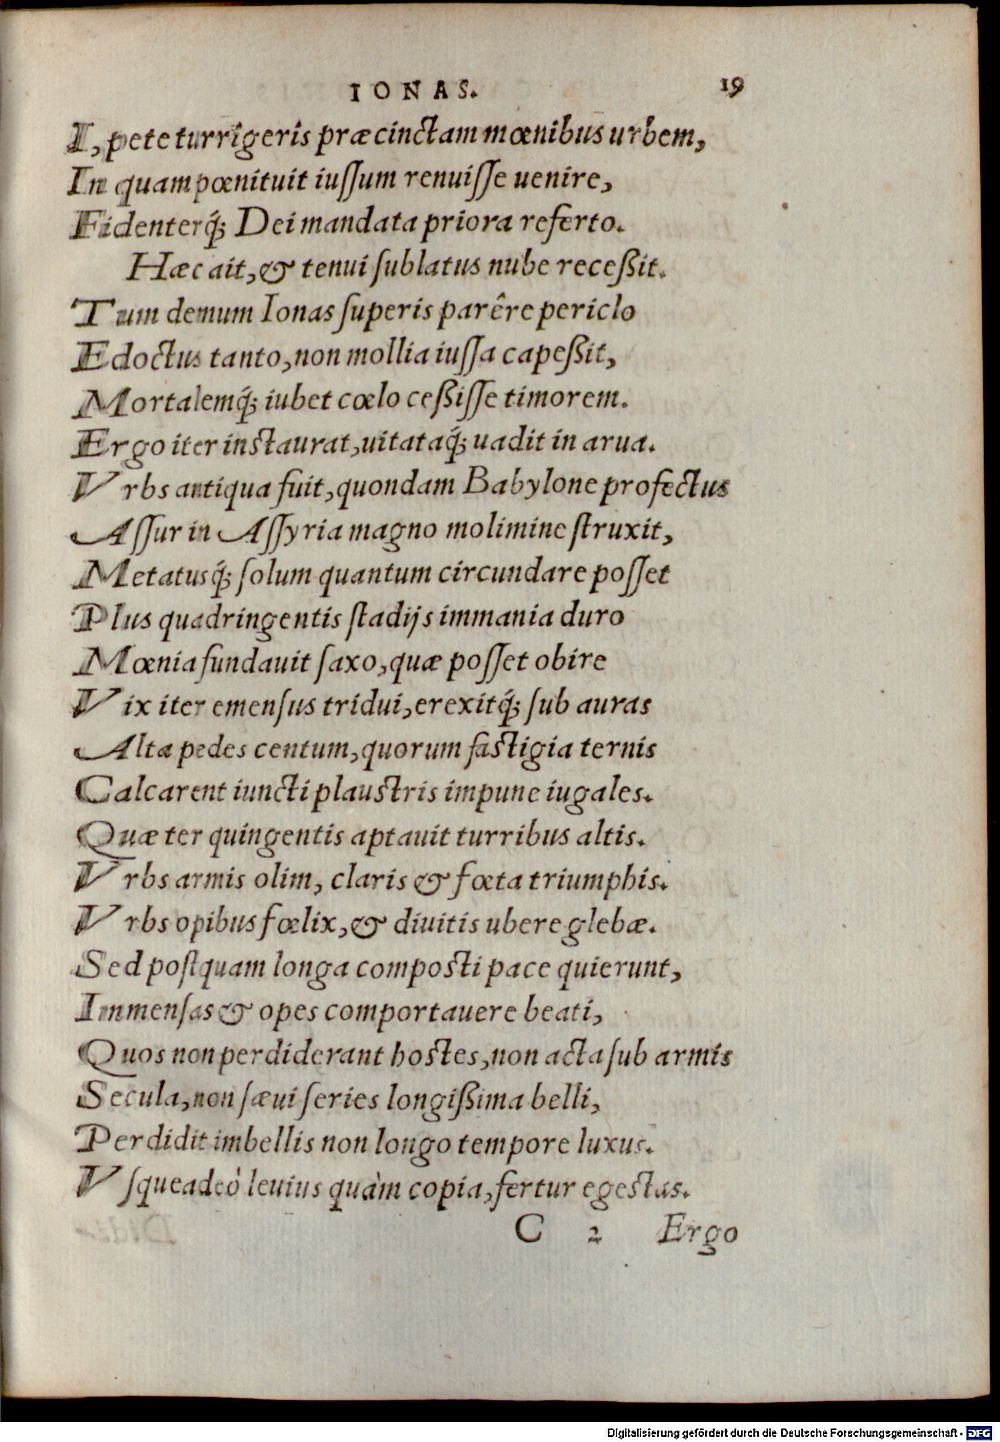 IONAS. 19
I, pete turrigeris præcinctam mœnibus urbem,
In quam pœnituit iussum renuisse uenire,
Fidenterq́; Dei mandata priora referto.
Hæc ait, & tenui sublatus nube receßit.
Tum demum Ionas superis parêre periclo
Edoctus tanto, non mollia iussa capeßit,
Mortalemq́; iubet cœlo ceßisse timorem.
Ergo iter instaurat, uitataq́; uadit in arua.
Vrbs antiqua fuit, quondam Babylone profectus
Assur in Assyria magno molimine struxit,
Metatusq́; solum quantum circundare posset
Plus quadringentis stadijs immania duro
Mœnia fundauit saxo, quæ posset obire
Vix iter emensus tridui, erexitq́; sub auras
Alta pedes centum, quorum fastigia ternis
Calcarent iuncti plaustris impune iugales.
Quæ ter quingentis aptauit turribus altis.
Vrbs armis olim, claris & fœta triumphis.
Vrbs opibus fœlix, & diuitis ubere glebæ.
Sed postquam longa composti pace quierunt,
Immensas & opes comportauere beati,
Quos non perdiderant hostes, non acta sub armis
Secula, non sæui series longißima belli,
Perdidit imbellis non longo tempore luxus.
Vsqueadeò leuius quàm copia, fertur egestas.
C 2 Ergo
Digitalisierung gefördert durch die Deutsche Forschungsgemeinschaft - DFG